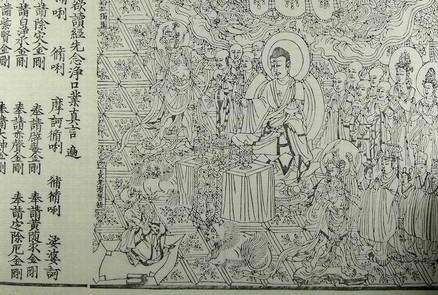 欲讀經先念淨口業真言 遍
脩唎 脩唎 摩訶脩唎 脩脩唎 娑婆訶
奉請除災金剛 奉請辟毒金剛 奉請黃隨求金剛
奉請白淨水金剛 奉請赤聲金剛 奉請定除厄金剛
請紫賢金剛 奉請大神金剛